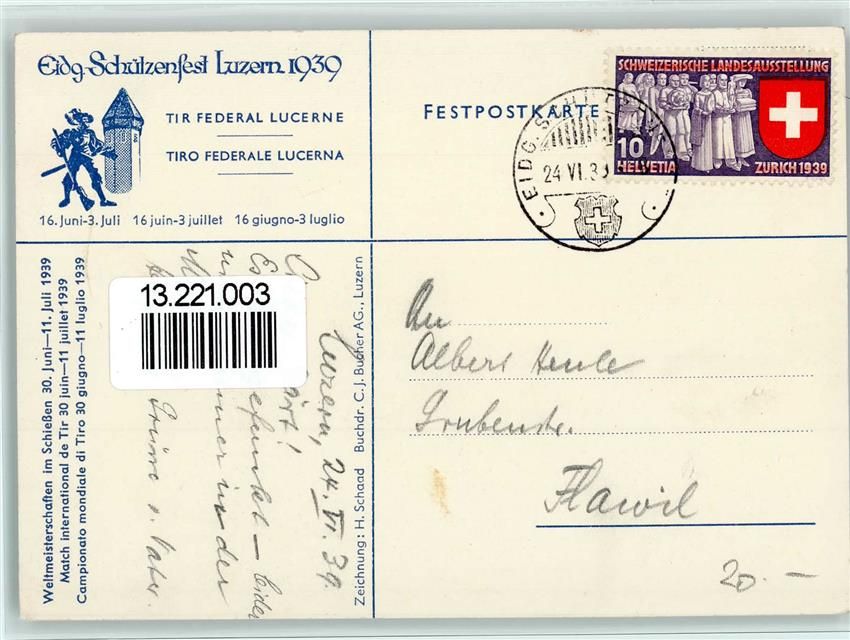 Eidg. Schützenfest Luzern 1939
TIR FEDERAL LUCERNE
TIRO FEDERALE LUCERNA
16. Juni-3. Juli 16 juin-3 juillet 16 giugno-3 luglio
FESTPOSTKARTE
SCHWEIZERISCHE LANDESAUSSTELLUNG
10
HELVETIA ZÜRICH 1939
EIDG.
24 VI.39
Weltmeisterschaften im Schießen 30. Juni—11. Juli 1939
Match international de Tir 30 juin—11 juillet 1939
Campionato mondiale di Tiro 30 giugno—11 luglio 1939
13.221.003
Luzern, 24. VI. 39
Es — leider
in der
Grüsse v. Vater.
Zeichnung: H. Schaad Buchdr. C. J. Bucher AG., Luzern
An
Albert Henle
Grubenstr.
Flawil
20.—